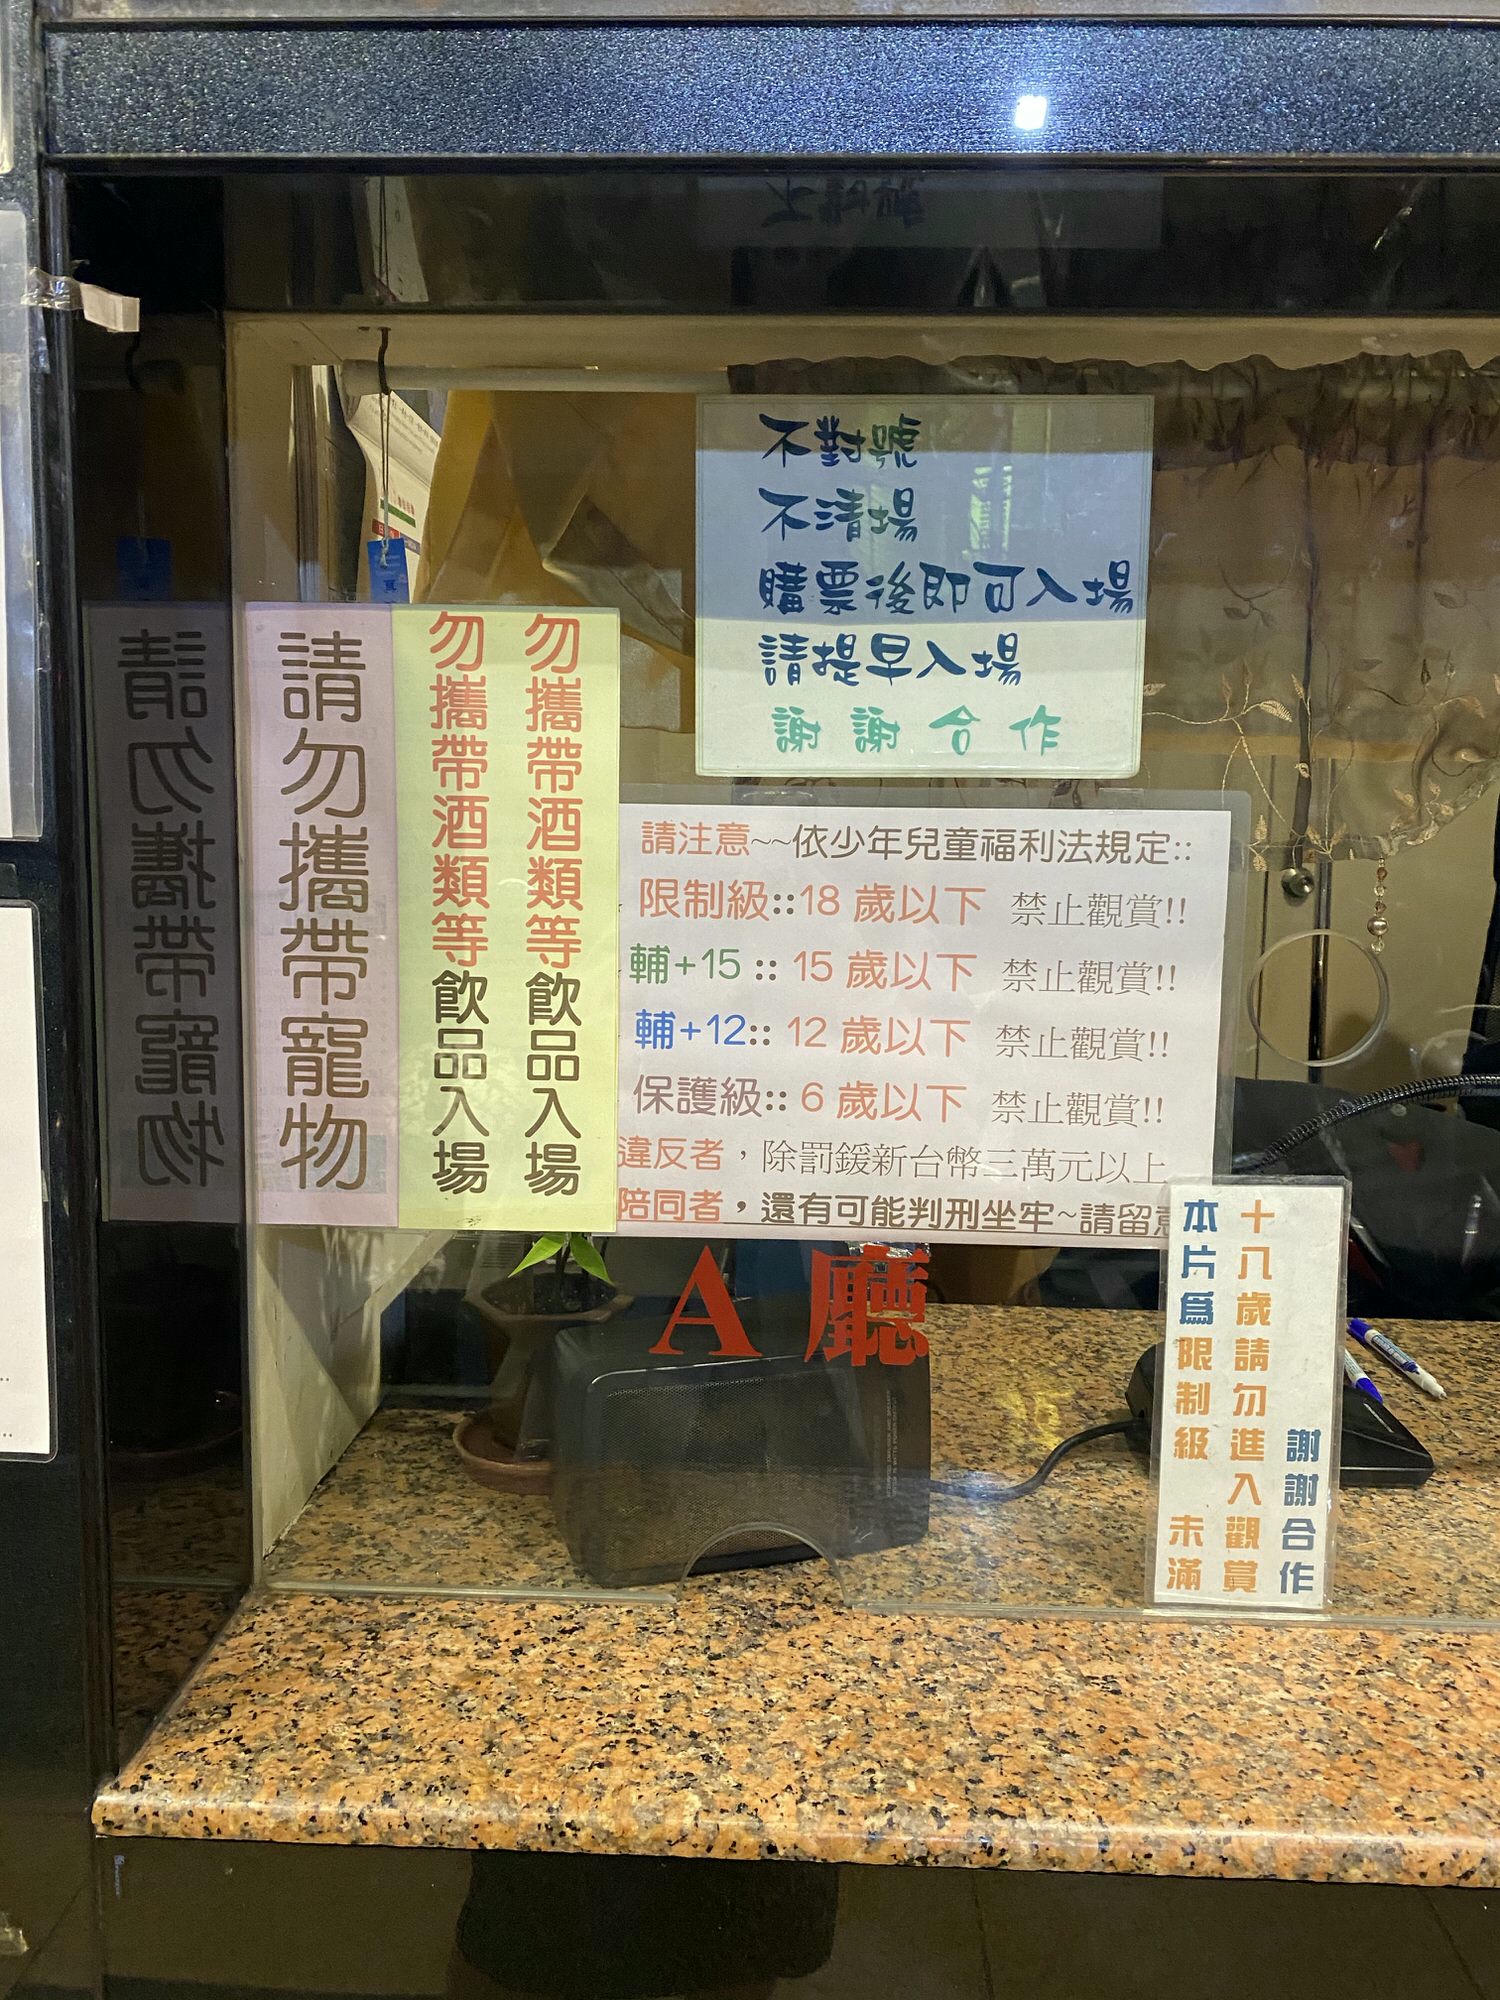 不對號
不清場
購票後即可入場
請提早入場
謝謝合作
請勿攜帶寵物
勿攜帶酒類等飲品入場
勿攜帶酒類等飲品入場
請注意~~依少年兒童福利法規定::
限制級::18 歲以下 禁止觀賞!!
輔+15 :: 15 歲以下 禁止觀賞!!
輔+12:: 12 歲以下 禁止觀賞!!
保護級:: 6 歲以下 禁止觀賞!!
違反者，除罰鍰新台幣三萬元以上
陪同者，還有可能判刑坐牢~請留意
A 廳
本片為限制級 未滿
十八歲請勿進入觀賞
謝謝合作